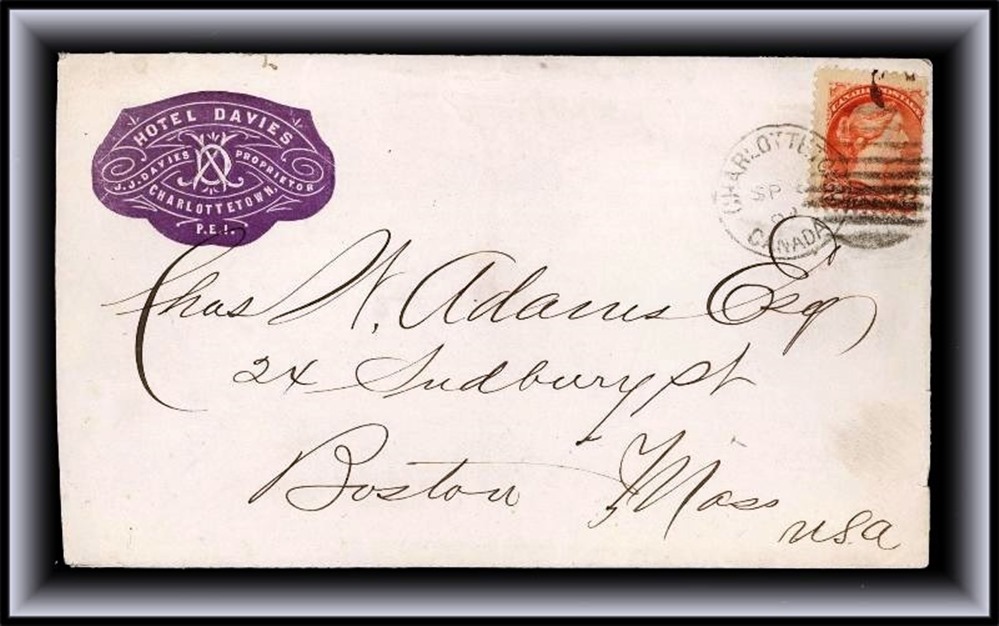 HOTEL DAVIES
J.J. DAVIES PROPRIETOR
CHARLOTTETOWN,
P.E.I.
CANADA POSTAGE
CHARLOTTETOWN
SP
CANADA
Chas W. Adams Esq
24 Sudbury St
Boston
Mass
USA